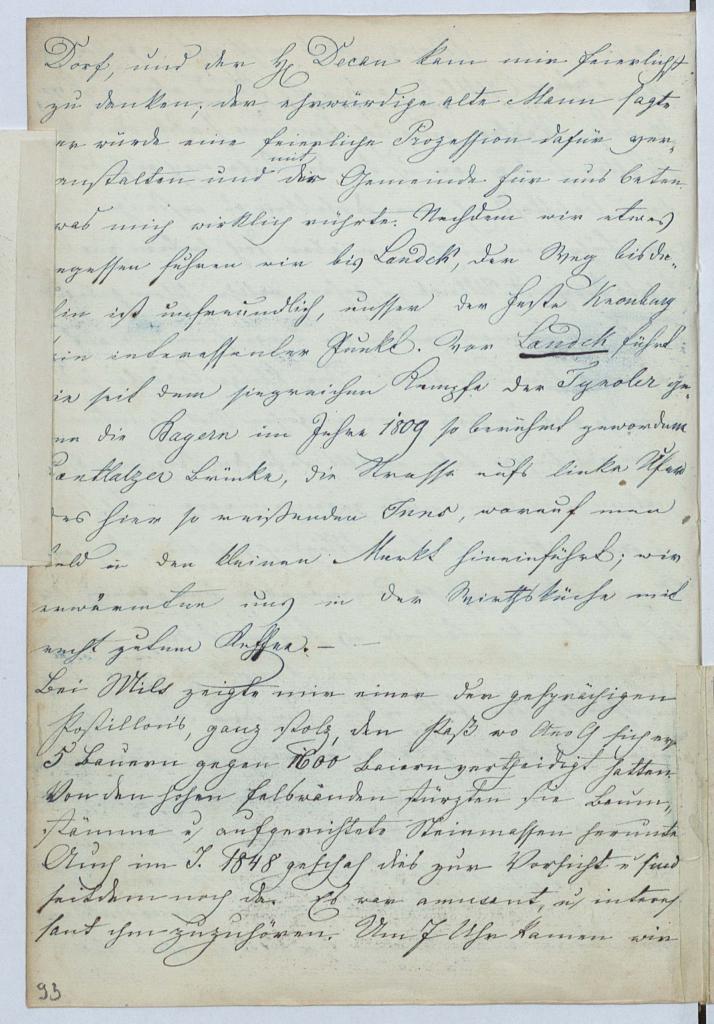 Dorf, und der H. Decan kam mir feierlichst
zu danken; der ehrwürdige alte Mann sagte
er würde eine feierliche Prozession dafür ver-
anstalten und mit der Gemeinde für uns beten
was mich wirklich rührte. Nachdem wir etwas
gegessen fuhren wir bis Landek, der Weg bis da-
hin ist unfreundlich, ausser der feste Kronburg
ein interessanter Punkt. Vor Landek führt
die seit dem siegreichen Kampfe der Tyroler ge-
gen die Bayern im Jahre 1809 so berühmt gewordene
Pontlatzer Brücke, die Strasse aufs linke Ufer
des hier so reißenden Inns, worauf man
bald in den kleinen Markt hineinführt; wir
erwärmten uns in der Wirthsküche mit
recht gutem Kaffee. —
Bei Mils zeigte mir einer der gesprächigen
Postillons, ganz stolz, den Paß wo Ano 9 sich
5 Bauern gegen 1600 Baiern vertheidigt hatten
Von den hohen Felswänden stürzten sie Baum-
stämme u. aufgerichtete Steinmassen herunter
Auch im J. 1848 geschah dies zur Vorsicht u sind
seitdem noch da. Es war amusant, u. interes-
sant ihm zuzuhören. Um 7 Uhr kamen wir
93